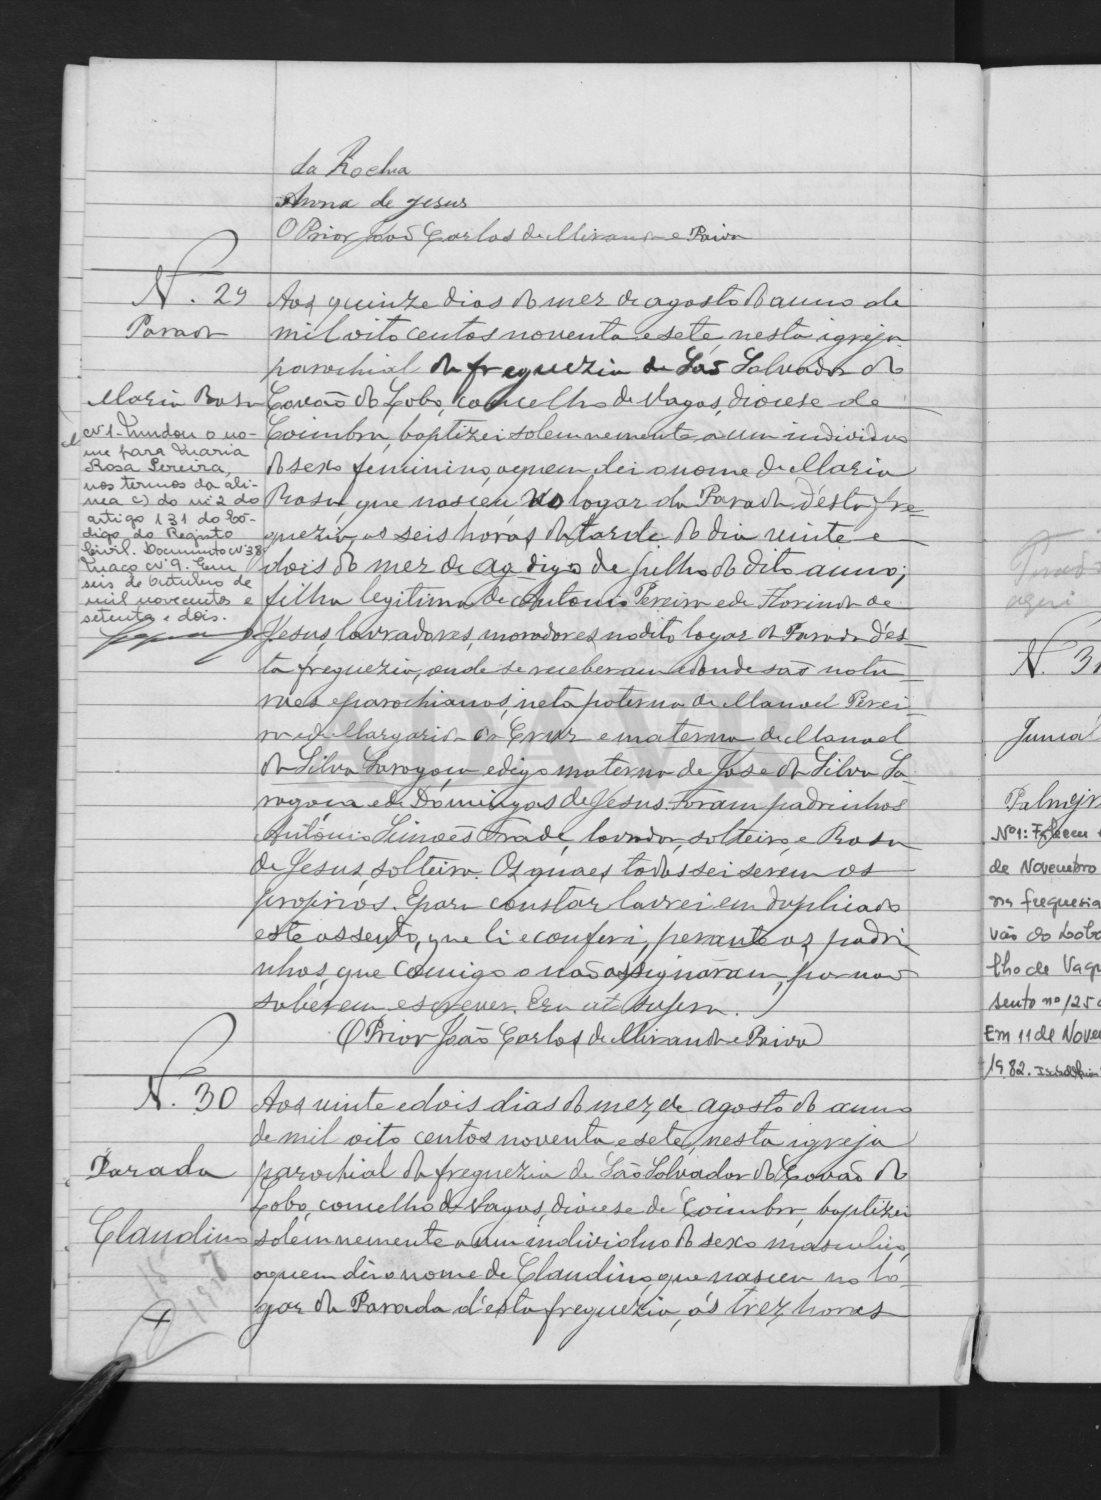 da Rocha
Anna de Jesus
O Prior João Carlos de Miranda e Paiva
N. 29
Parada
Maria Rosa
Nº 1 - Mudou o no-
me para Maria
Rosa Pereira,
nos termos da alí-
nea c) do nº 2 do
artigo 131 do Có-
digo do Registo
Civil. Documento Nº 38,
Maço Nº 9. Em
seis de Outubro de
mil novecentos e
setenta e dois.
Aos quinze dias do mez de agosto do anno de
mil oito centos noventa e sete, nesta igreja
parochial da freguezia de São Salvador do
Covão do Lobo, concelho de Vagos, diocese de
Coimbra, baptizei solemnemente a um individuo
do sexo feminino, a quem dei o nome de Maria
Rosa que nasceu no logar da Parada d'esta fre-
guezia, as seis horas da tarde do dia vinte e
dois do mez de ag digo de Julho do dito anno;
filha legitima de Antonio Pereira e de Florinda de
Jesus, lavradores, moradores no dito logar da Parada d'es-
ta freguezia, onde se receberam e donde são natu-
raes e parochianos, neta paterna de Manoel Perei-
ra e de Margarida da Cruz e materna de Manoel
da Silva Saragoça e digo materna de Jose da Silva Sa-
ragoça e de Domingas de Jesus. Foram padrinhos
Antonio Simões Frade, lavrador, solteiro, e Rosa
de Jesus, solteira. Os quaes todos sei serem os
proprios. E para constar lavrei em duplicado
este assento, que li e conferi, perante os padri
nhos, que comigo o não assignaram, por não
saberem escrever. Era ut supra.
O Prior João Carlos de Miranda e Paiva
N. 30
Parada
Claudino
Aos vinte e dois dias do mez de agosto do anno
de mil oito centos noventa e sete, nesta igreja
parochial da freguezia de São Salvador do Covão do
Lobo, concelho de Vagos, diocese de Coimbra, baptizei
solemnemente a um individuo do sexo masculino,
a quem dei o nome de Claudino, que nasceu no lo-
gar da Parada d'esta freguezia, ás trez horas
N. 31
Nº 1:
de Novembro
na freguesia
vão do Lobo
lho de Vag
sento nº 125
Em 11 de Nove
1982.